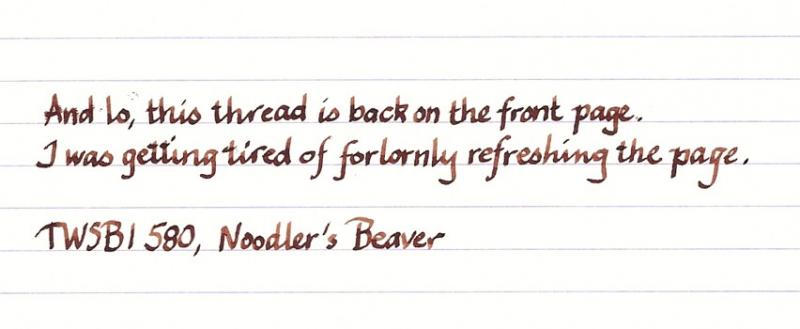 And lo, this thread is back on the front page.
I was getting tired of forlornly refreshing the page.
TWSBI 580, Noodler's Beaver